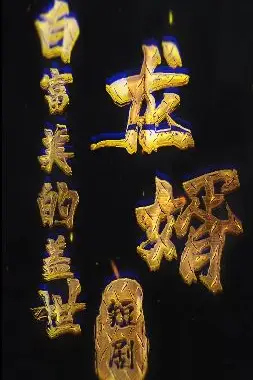 白富美的盖世
龙婿
短剧